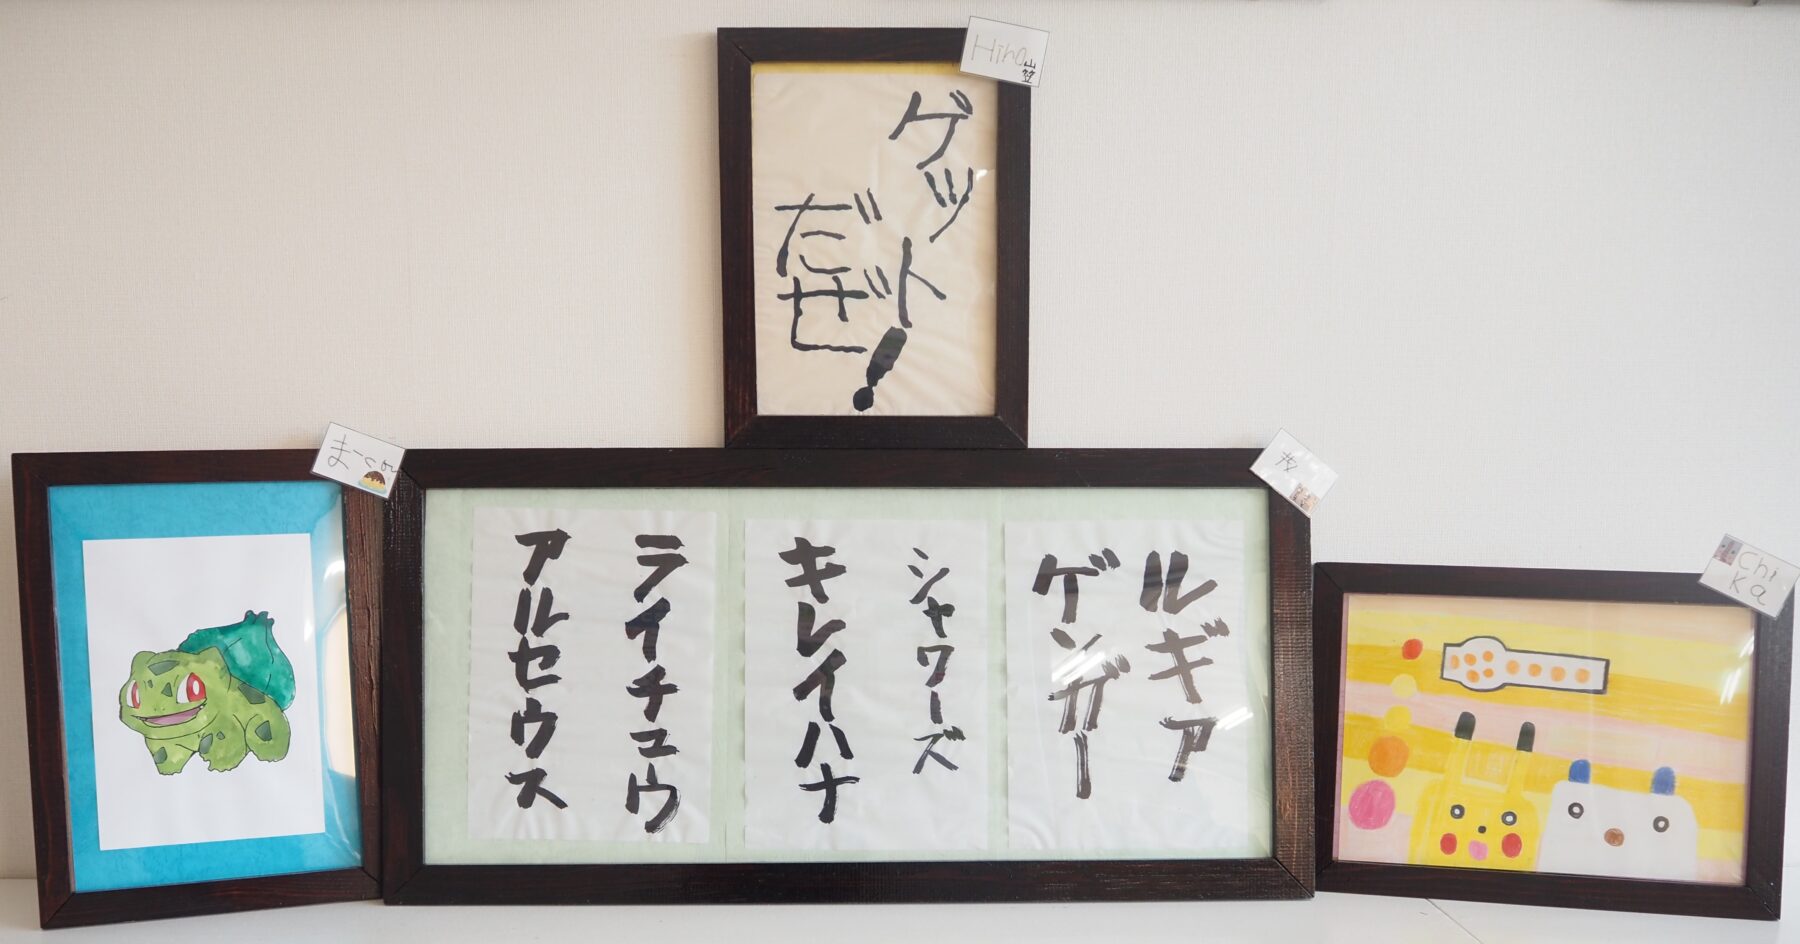 Hiro
山笠
ゲット
だぜ!
ルギア
ゲンガー
シャワーズ
キレイハナ
ライチュウ
アルセウス
Chi
Ka